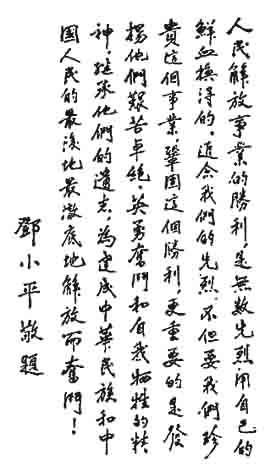 人民解放事業的勝利，是無數先烈用自己的
鮮血換得的，追念我們的先烈，不但要我們珍
貴這個事業，鞏固這個勝利，更重要的是發
揚他們艱苦卓絕，英勇奮鬥和自我牺牲的精
神，繼承他們的遺志，為建成中華民族和中
國人民的最後地最澈底地解放而奮鬥！
鄧小平敬題